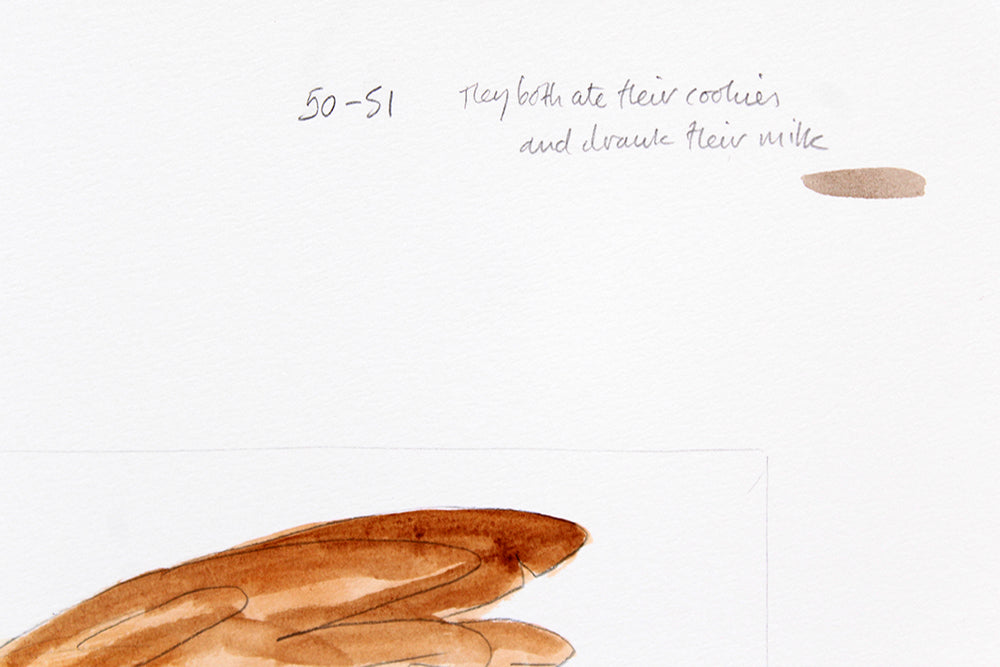 50-51 They both ate their cookies
and drank their milk